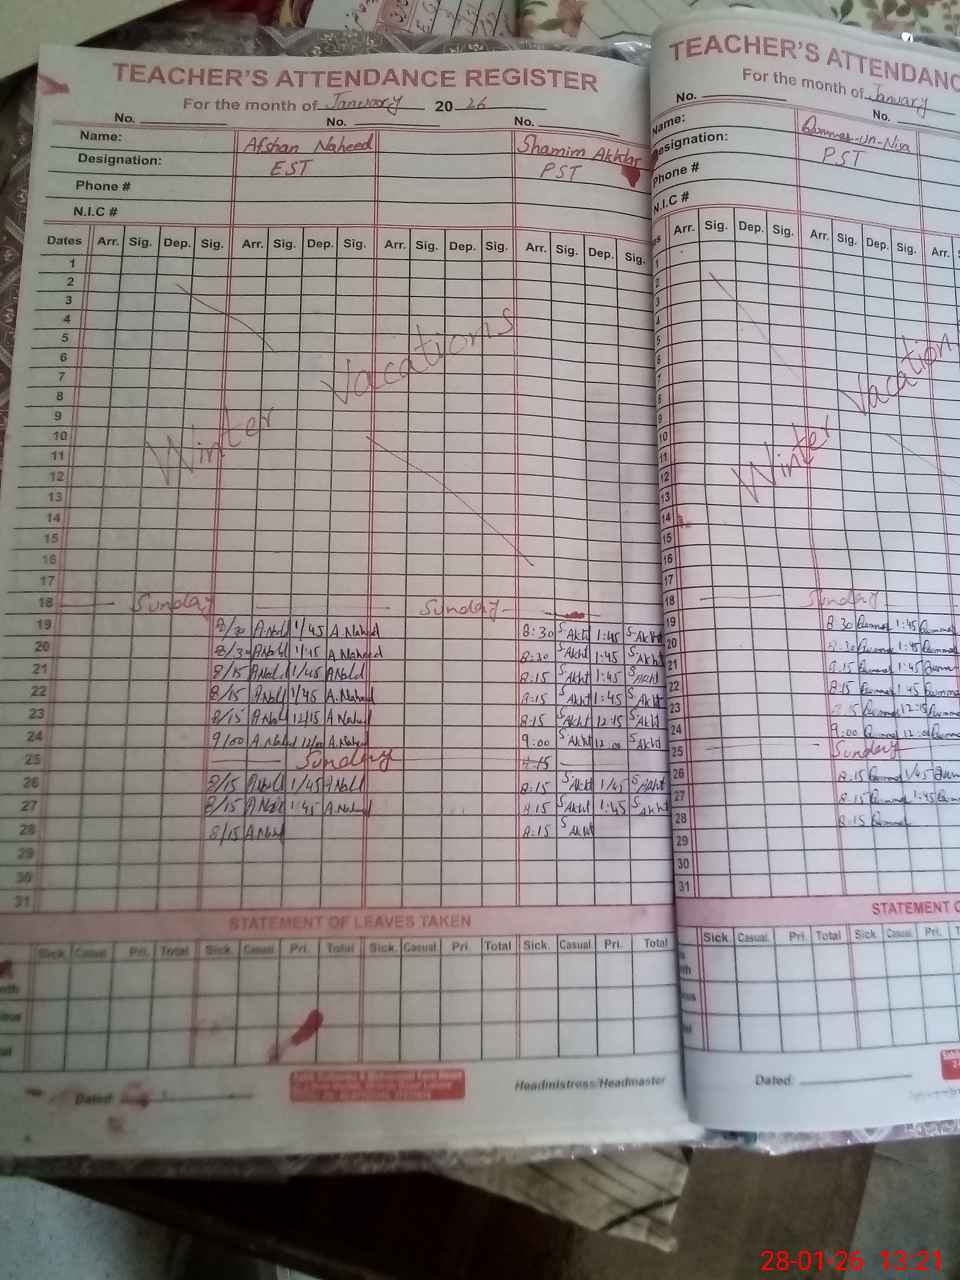 TEACHER'S ATTENDANCE REGISTER
For the month of January 20 26
No. No. No.
Name: Afshan Naheed Shamim Akhtar
Designation: EST PST
Phone #
N.I.C #
Dates Arr. Sig. Dep. Sig. Arr. Sig. Dep. Sig. Arr. Sig. Dep. Sig. Arr. Sig. Dep. Sig.
1
2
3
4
5
6
7
8
9
10
11
12
13
14
15
16
17
Winter Vacations
18 Sunday Sunday
19 8/30 A.Nahd 1/45 A.Naheed 8:30 S Akht 1:45 S Akht
20 8/30 A.Nahd 1/45 A.Naheed 8:30 S Akht 1:45 S Akht
21 8/15 A.Nahd 1/45 A.Nahd 8:15 S Akht 1:45 S Akht
22 8/15 A.Nahd 1/45 A.Naheed 8:15 S Akht 1:45 S Akht
23 8/15 A.Nahd 12/15 A.Naheed 8:15 S Akht 12:15 S Akht
24 9/00 A.Naheed 12/00 A.Naheed 9:00 S Akht 12:00 S Akht
25 Sunday 8:15
26 8/15 A.Nahd 1/45 A.Nahd 8:15 S Akht 1/45 S Akht
27 8/15 A.Nahd 1:45 A.Nahed 8:15 S Akht 1:45 S Akht
28 8/15 A.Nahd 8:15 S Akht
29
30
31
STATEMENT OF LEAVES TAKEN
Sick. Casual. Pri. Total Sick. Casual. Pri. Total Sick. Casual. Pri. Total Sick. Casual. Pri. Total
Dated: Headmistress/Headmaster
TEACHER'S ATTENDANC
For the month of January
No. No.
Name: Qummer-un-Nisa
Designation: PST
Phone #
N.I.C #
Arr. Sig. Dep. Sig. Arr. Sig. Dep. Sig. Arr.
1
2
3
4
5
6
7
8
9
10
11
12
13
14
15
16
17
Winter Vacation
18 Sunday
19 8:30 Qummer 1:45 Qummer
20 8:30 Qummer 1:45 Qummer
21 8:15 Qummer 1:45 Qummer
22 8:15 Qummer 1:45 Qummer
23 8:15 Qummer 12:15 Qummer
24 9:00 Qummer 12:00 Qummer
25 Sunday
26 8:15 Qummer 1/45 Qumm
27 8:15 Qummer 1:45 Qumm
28 8:15 Qummer
29
30
31
STATEMENT O
Sick. Casual. Pri. Total Sick. Casual. Pri.
Dated:
28-01-26 13:21